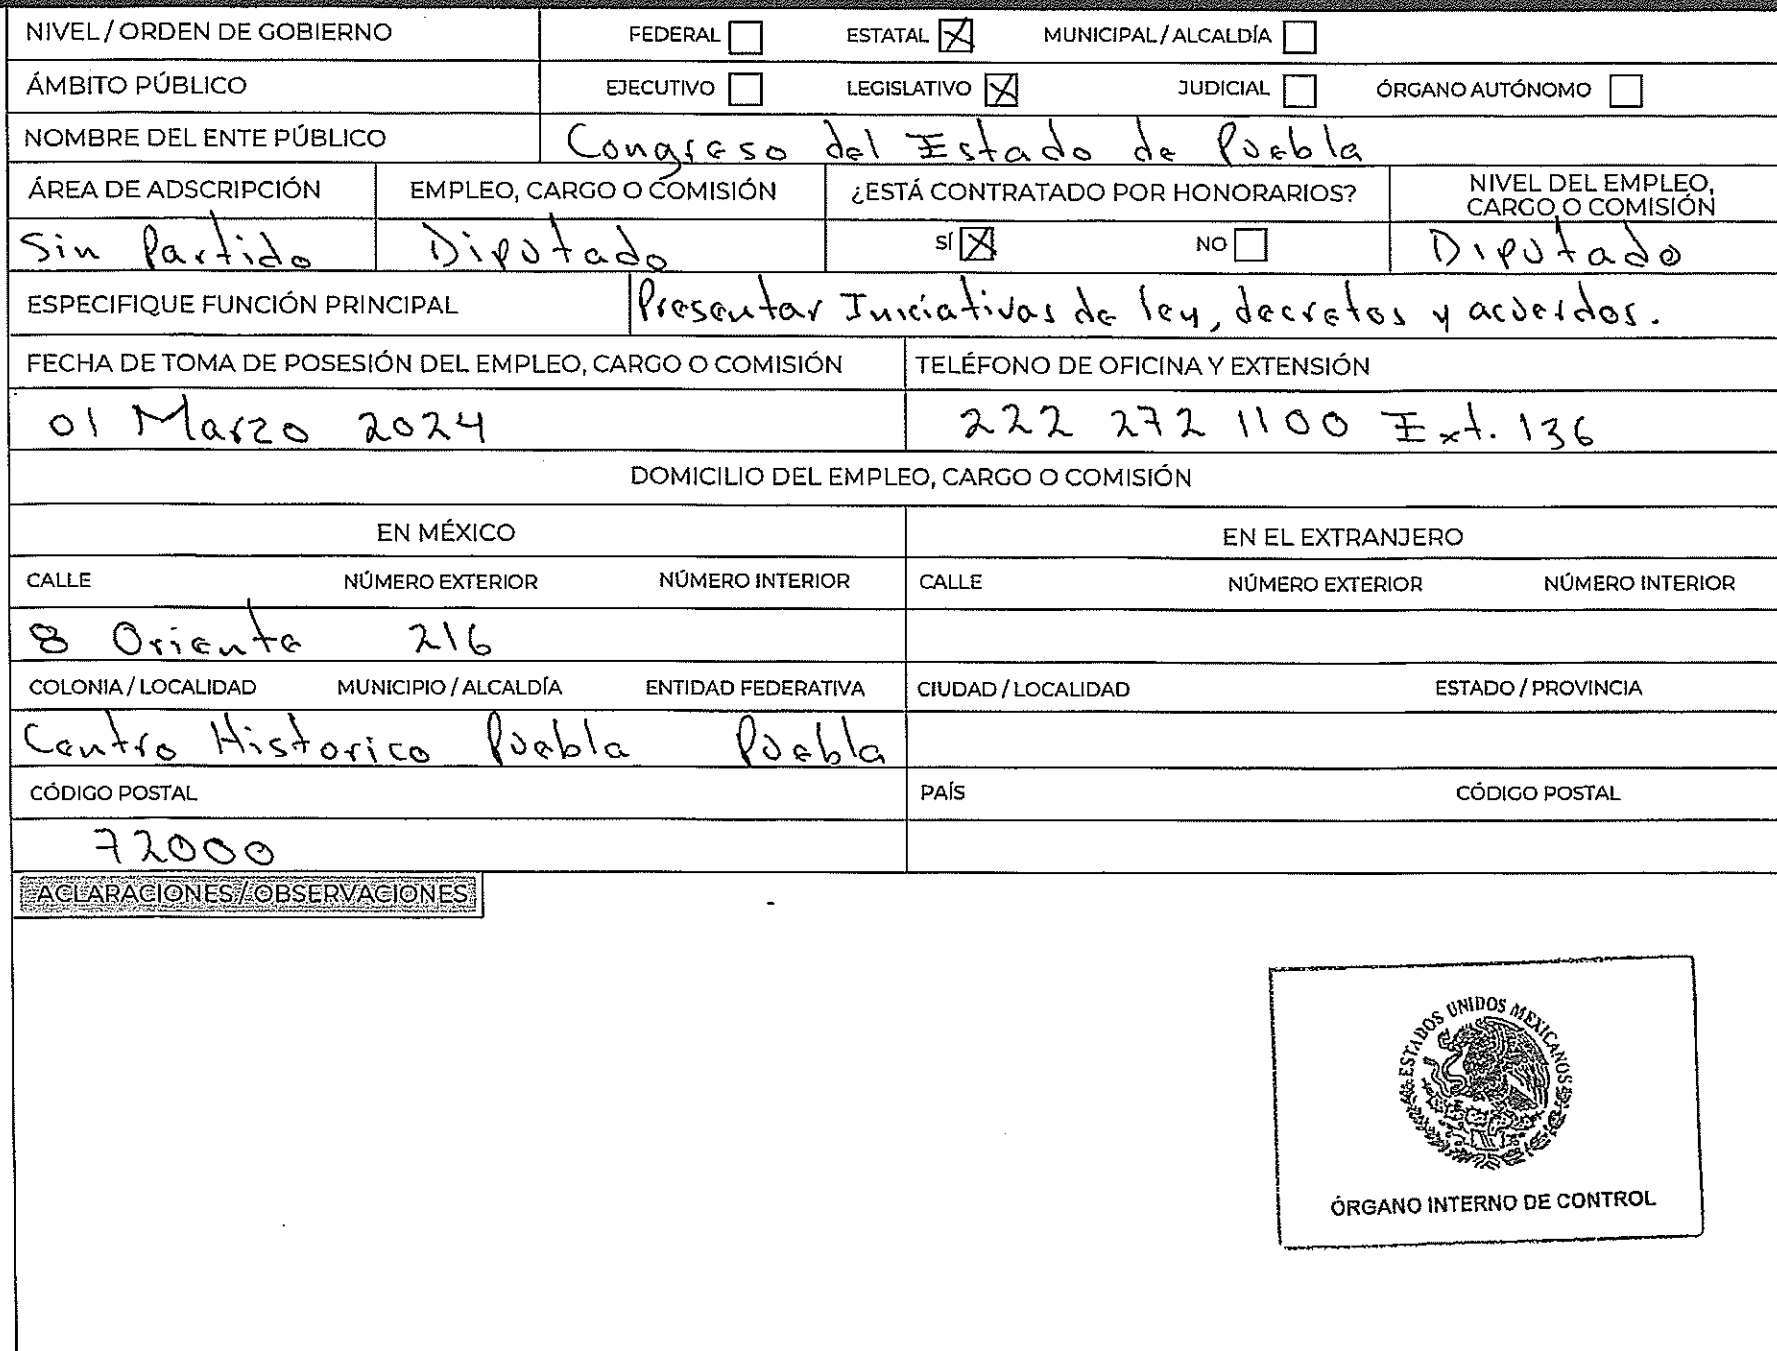 NIVEL / ORDEN DE GOBIERNO FEDERAL ☐ ESTATAL ☒ MUNICIPAL / ALCALDÍA ☐
ÁMBITO PÚBLICO EJECUTIVO ☐ LEGISLATIVO ☒ JUDICIAL ☐ ÓRGANO AUTÓNOMO ☐
NOMBRE DEL ENTE PÚBLICO Congreso del Estado de Puebla
ÁREA DE ADSCRIPCIÓN EMPLEO, CARGO O COMISIÓN ¿ESTÁ CONTRATADO POR HONORARIOS? NIVEL DEL EMPLEO,
CARGO O COMISIÓN
Sin Partido Diputado SÍ ☒ NO ☐ Diputado
ESPECIFIQUE FUNCIÓN PRINCIPAL Presentar Iniciativas de ley, decretos y acuerdos.
FECHA DE TOMA DE POSESIÓN DEL EMPLEO, CARGO O COMISIÓN TELÉFONO DE OFICINA Y EXTENSIÓN
01 Marzo 2024 222 272 1100 Ext. 136
DOMICILIO DEL EMPLEO, CARGO O COMISIÓN
EN MÉXICO EN EL EXTRANJERO
CALLE NÚMERO EXTERIOR NÚMERO INTERIOR CALLE NÚMERO EXTERIOR NÚMERO INTERIOR
8 Oriente 216
COLONIA / LOCALIDAD MUNICIPIO / ALCALDÍA ENTIDAD FEDERATIVA CIUDAD / LOCALIDAD ESTADO / PROVINCIA
Centro Historico Puebla Puebla
CÓDIGO POSTAL PAÍS CÓDIGO POSTAL
72000
ACLARACIONES / OBSERVACIONES
ESTADOS UNIDOS MEXICANOS
ÓRGANO INTERNO DE CONTROL